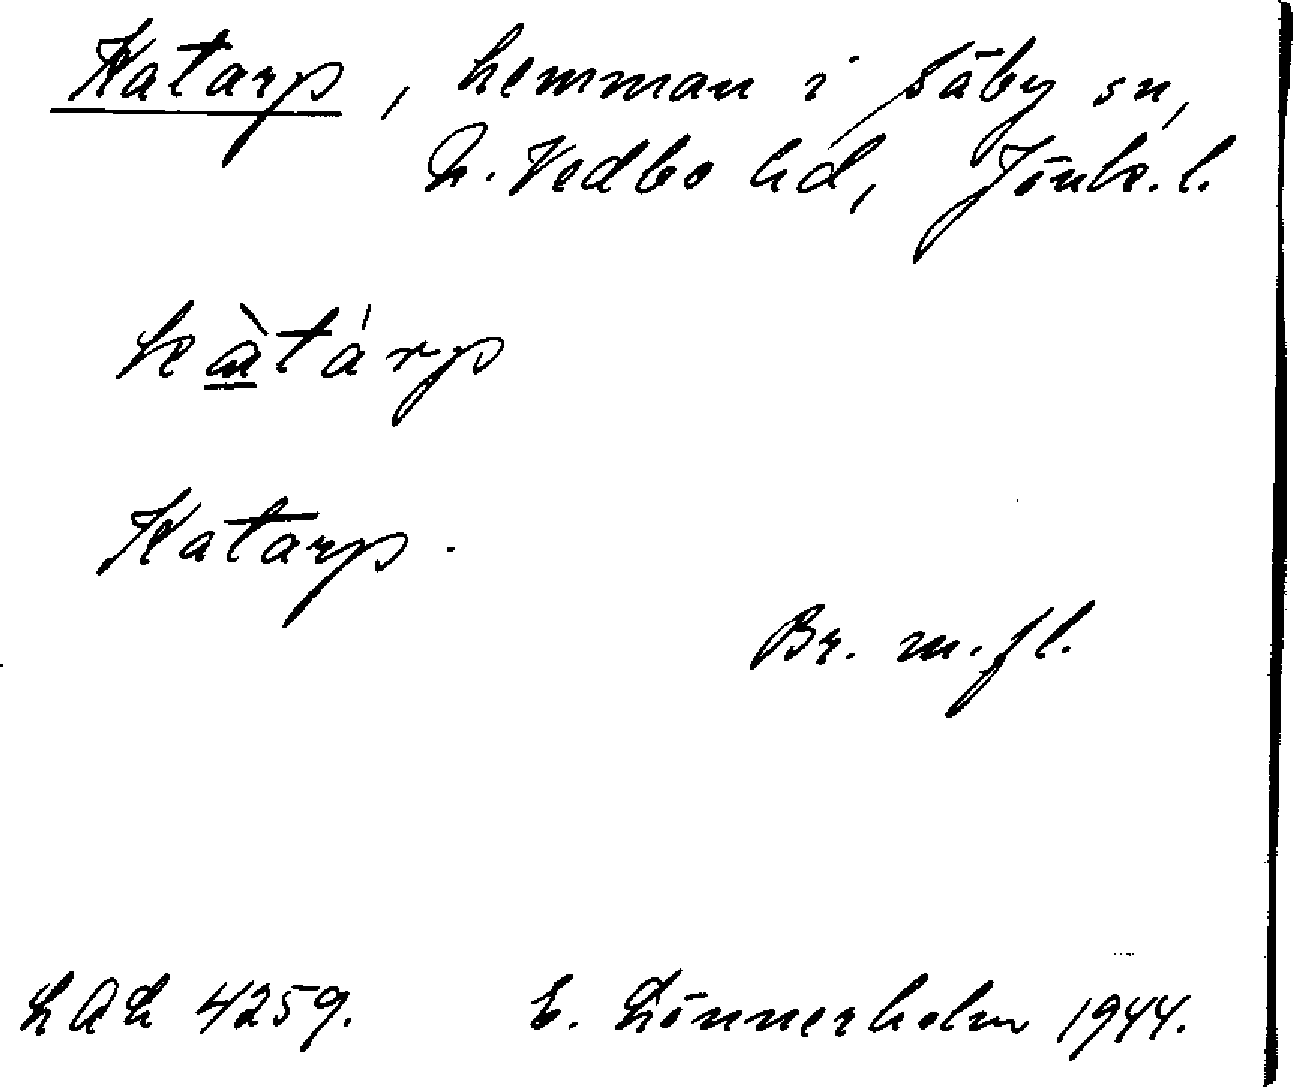 Katarp, hemman i Säby sn,
N. Vedbo hd, Jönk. l.
kàtárp
Katarp.
Br. m. fl.
LAL 4259. E. Lönnerholm 1944.